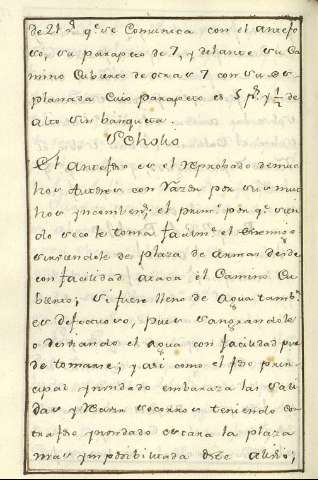 de 21 ps. qe. se Comunica con el antefo
so, su parapeto de 7, y delante su Ca
mino Cubierto de otras 7 con su es
planada Cuio parapeto es 5 ps. y 1/2 de
alto sin banqueta.
Scholio
El Antefoso es el reprobado de muchos
Autores con razon por sus muc
hos incombens. el primo. por qe. sien
do seco le toma facilmte. el Enemigo
sirviendole de plaza de Armas desde
con facilidad ataca el Camino Cu
bierto; si fuere lleno de Agua tambn.
es defectuoso, pues sangrandole
o desechando el agua con facilidad pue
de tomarse; y asi como el foso prin
cipal ynundado embaraza las sali
das y socorros teniendo con
trafoso ynondado estara la plaza
mas ymposibilitada deste alivio;